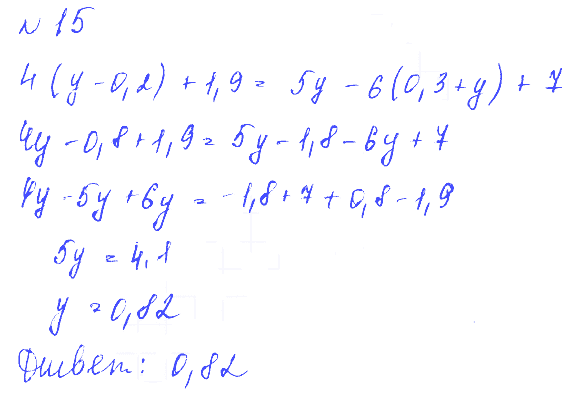 № 15
4(y-0,2)+1,9= 5y-6(0,3+y)+7
4y-0,8+1,9=5y-1,8-6y+7
4y-5y+6y=-1,8+7+0,8-1,9
5y=4,1
y=0,82
Ответ: 0,82